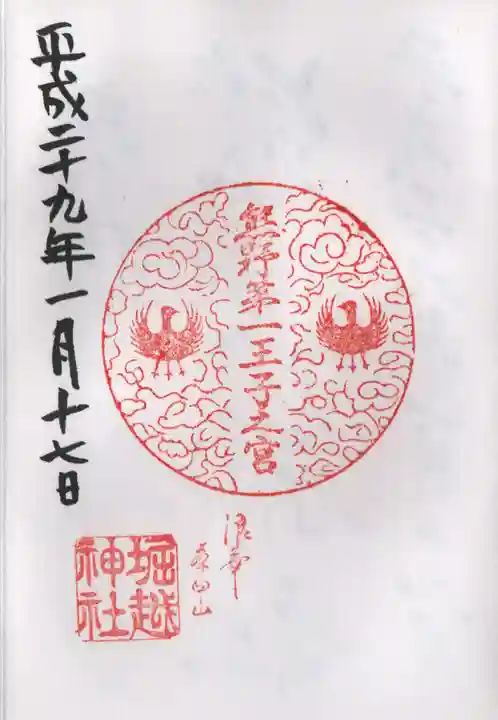 熊野第一王子之宮
浪華
茶臼山
堀越
神社
平成二十九年一月十七日